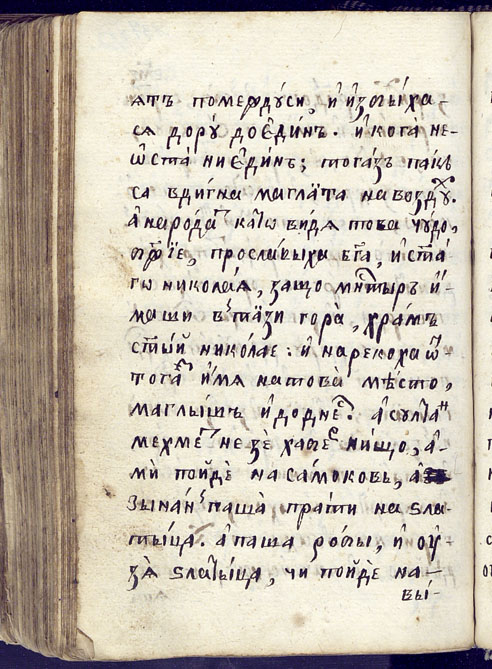 ѧтъ помеждуси, и избыха-
сѧ дору доедінъ. и кога не-
ѡ҆ста ниедінъ; тогазъ пакъ
са вдигна маглата навозду͏̑х.
а народат като видѧ това чудо,
прославыха бг҃а, и ст҃а-
гѡ николаѧ, защо мн҃тыръ и-
маши в тази гора, храмъ
ст҃ый николае: и нарекоха ѿ-
тога имѧ натова мѣсто,
маглыжъ идоднес. а султан
мехмет незѐ хапе нищо, а-
ми пойде насамоковъ, а
зинан паша прати на зла-
тыца. а паша роби, и оу-
зѧ златыца, чи пойде на-
вы-